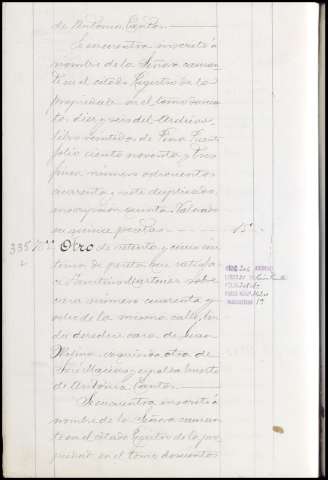 de Antonio Cantos.
Se encuentra inscrito á
nombre de la Señora causan-
te en el citado Registro de la
propiedad en el tomo
tos diez y seis del archivo,
libro de
folio ciento noventa y tres
finca número ochocientos
cuarenta y siete duplicado,
inscripción quinta. Valorado
en quince pesetas 15"
335 Otro de setenta y cinco cén-
timos de peseta que satisfa-
ce Martinez sobre
casa número cuarenta y
ocho de la misma calle, lin-
da derecha casa de Juan
Molina, izquierda otra de
José Macías y espalda huerto
de Antonio Cantos
Se encuentra inscrito á
nombre de la Señora causan-
te en el citado Registro de la pro-
piedad en el tomo doscientos